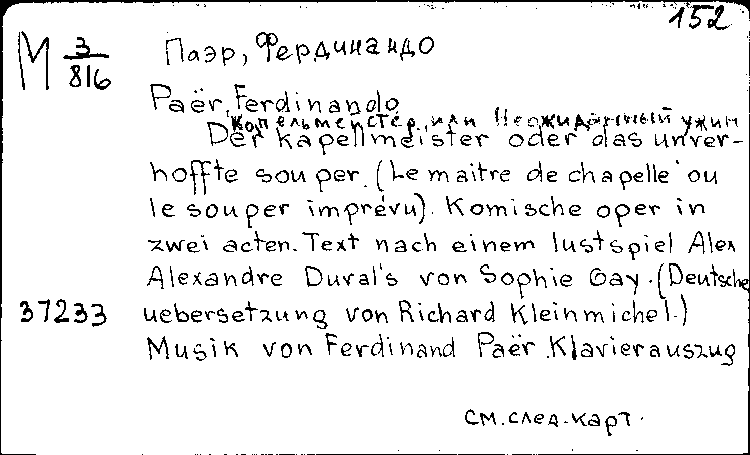 152
М 3/816
Паэр, Фердинандо
Paër, Ferdinando
Капельмейстер, или Неожиданный ужин
Der kapellmeister oder das unver-
hoffte souper. (Le maitre de chapelle ou
le souper imprévu). Komische oper in
zwei acten. Text nach einem lustspiel Alex
Alexandre Duval's von Sophie Gay. (Deutsche
37233 uebersetzung von Richard Kleinmichel.)
Musik von Ferdinand Paër. Klavierauszug
см. след. карт.